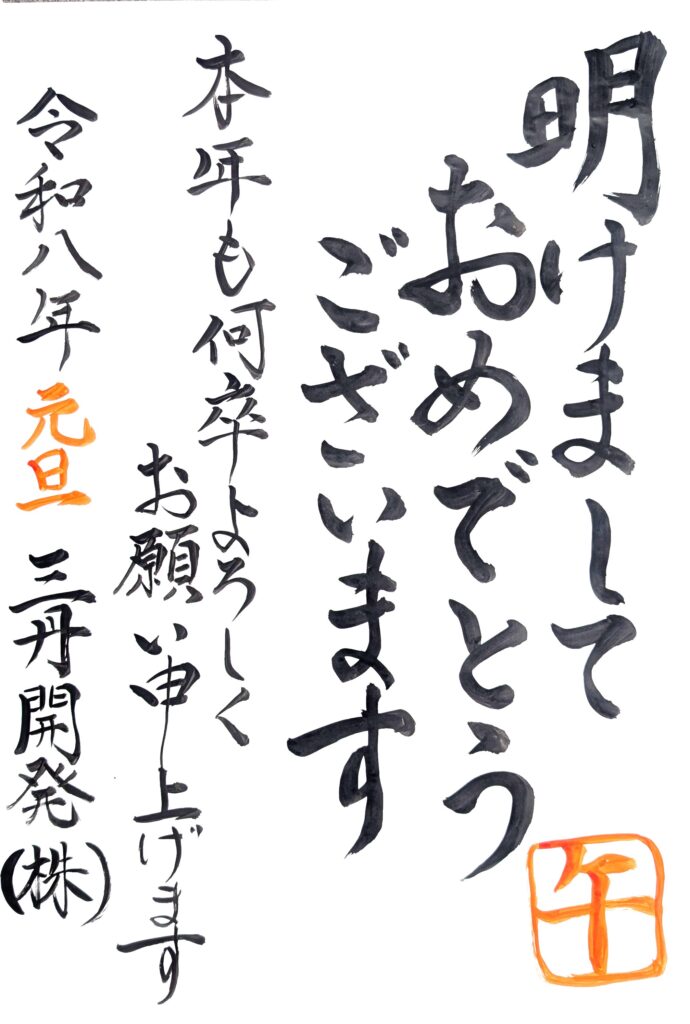 明けまして
おめでとう
ございます
午
本年も何卒よろしく
お願い申上げます
令和八年 元旦 三丹開発(株)